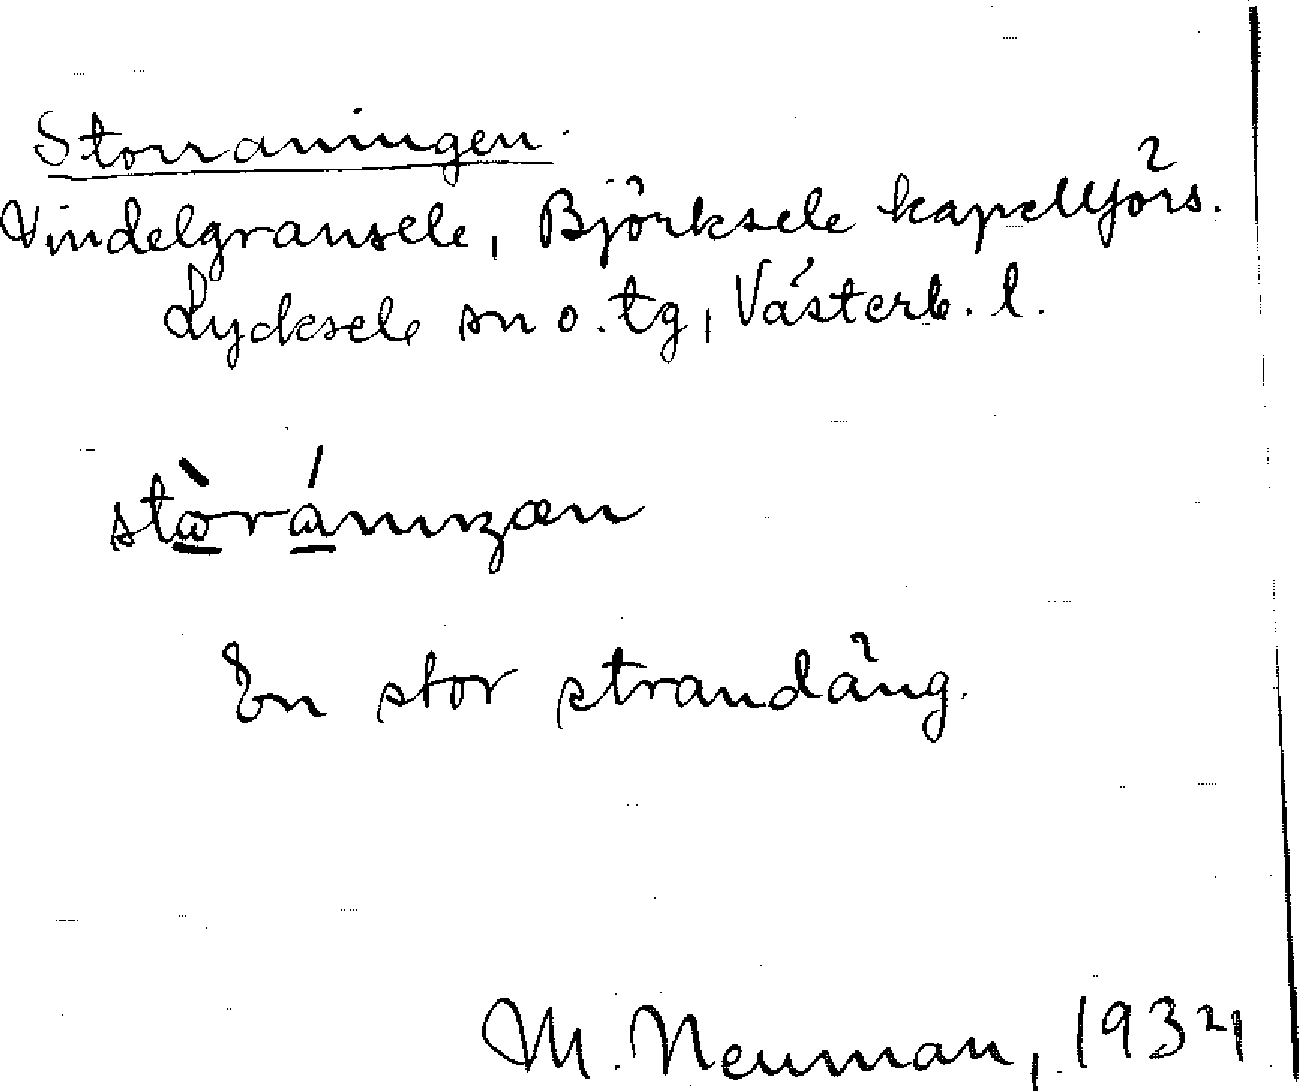 Storraningen.
Vindelgransele, Björksele kapellförs.
Lycksele sn o. tg, Västerb. l.
stòrániŋæn
En stor strandäng.
M. Neuman, 1934